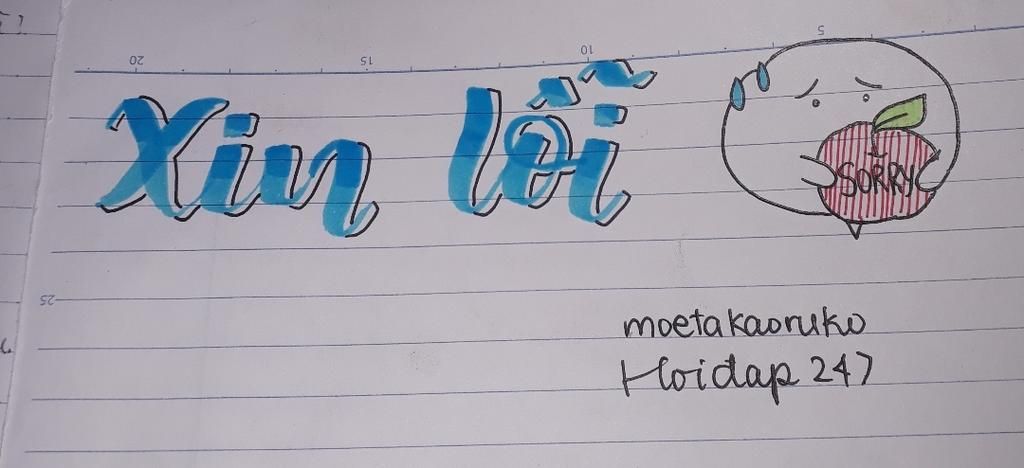 20 15 10 5
Xin lỗi
SORRY
25
moetakaoruko
Hoidap 247